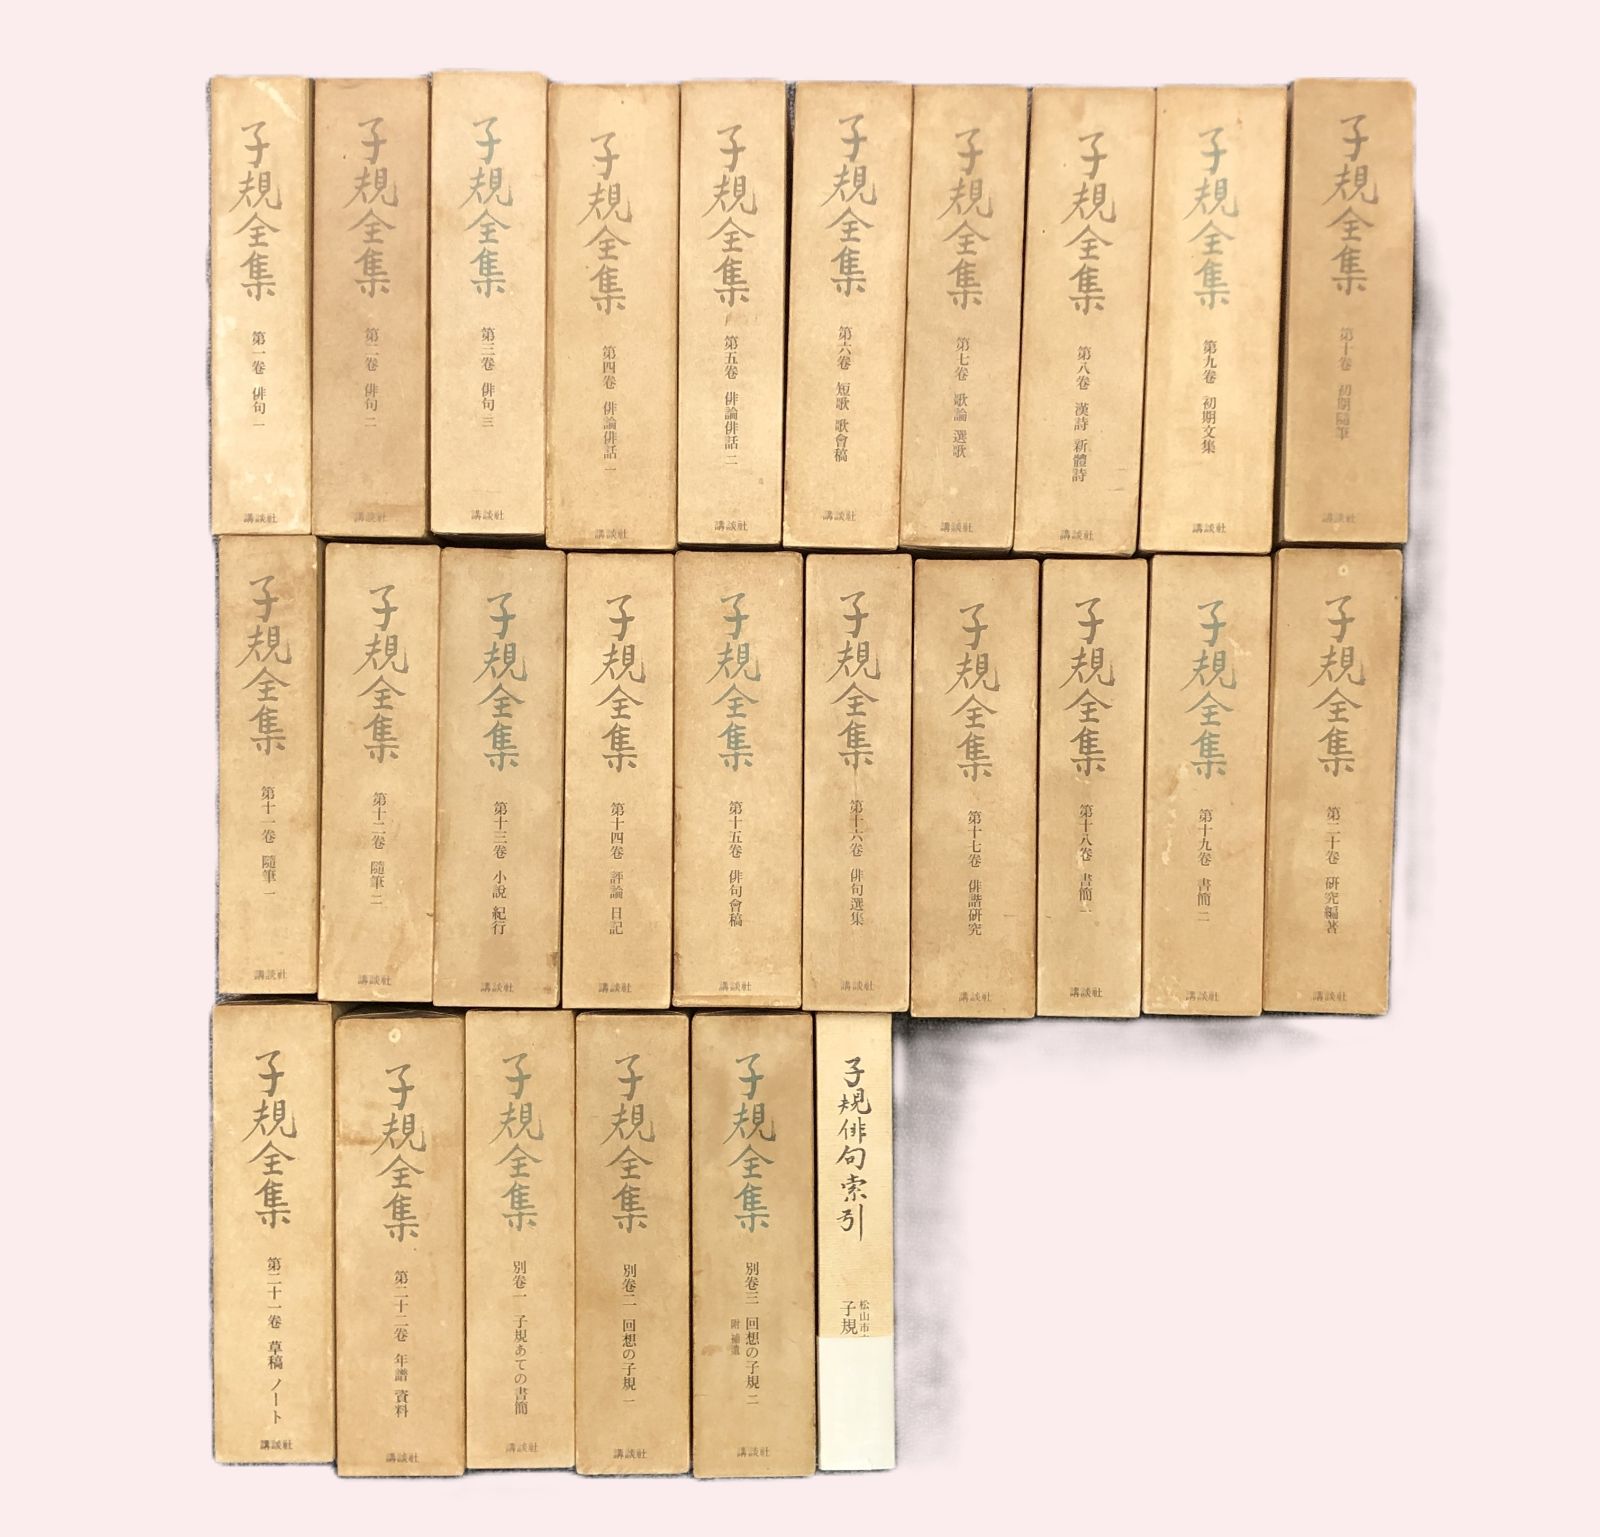 子規全集 第一卷 俳句 一 講談社
子規全集 第二卷 俳句 二 講談社
子規全集 第三卷 俳句 三 講談社
子規全集 第四卷 俳論俳話 一 講談社
子規全集 第五卷 俳論俳話 二 講談社
子規全集 第六卷 短歌 歌會稿 講談社
子規全集 第七卷 歌論 選歌 講談社
子規全集 第八卷 漢詩 新體詩 講談社
子規全集 第九卷 初期文集 講談社
子規全集 第十卷 初期隨筆 講談社
子規全集 第十一卷 隨筆 一 講談社
子規全集 第十二卷 隨筆 二 講談社
子規全集 第十三卷 小說 紀行 講談社
子規全集 第十四卷 評論 日記 講談社
子規全集 第十五卷 俳句會稿 講談社
子規全集 第十六卷 俳句選集 講談社
子規全集 第十七卷 俳諧研究 講談社
子規全集 第十八卷 書簡 一 講談社
子規全集 第十九卷 書簡 二 講談社
子規全集 第二十卷 研究編著 講談社
子規全集 第二十一卷 草稿 ノート 講談社
子規全集 第二十二卷 年譜 資料 講談社
子規全集 別卷一 子規あての書簡 講談社
子規全集 別卷二 回想の子規 一 講談社
子規全集 別卷三 回想の子規 二 附 補遺 講談社
子規俳句索引 松山市 子規